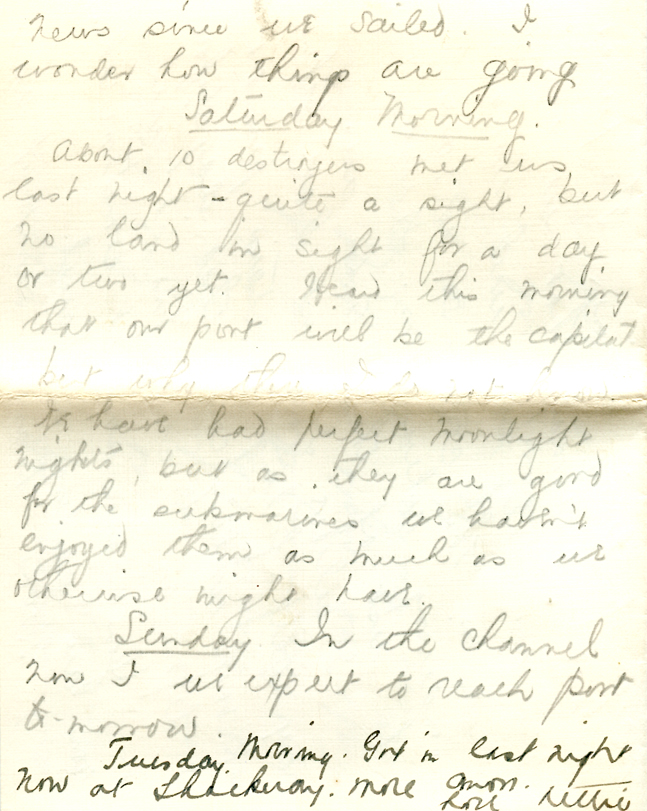 news since we sailed. I
wonder how things are going
Saturday Morning.
About 10 destroyers met us
last night - quite a sight, but
no land in sight for a day
or two yet. Hear this morning
that our port will be the capital
but why there I do not know.
We have had perfect moonlight
nights, but as they are good
for the submarines we haven't
enjoyed them as much as we
otherwise might have.
Sunday In the channel
now & we expect to reach port
to-morrow.
Tuesday Morning. Got in last night
now at more anon.
Love Nettie